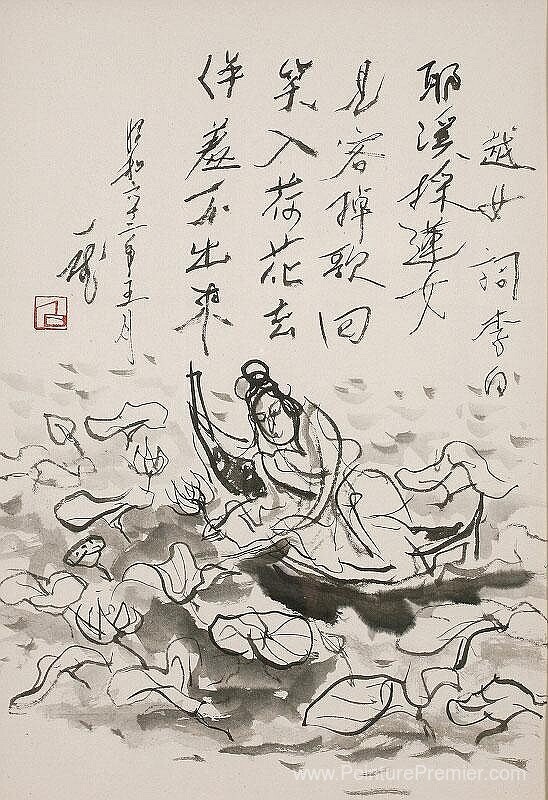 越女詞 李白
耶溪採蓮女
見客棹歌回
笑入荷花去
佯羞不出來
昭和六十二年五月
www.PeinturePremier.com